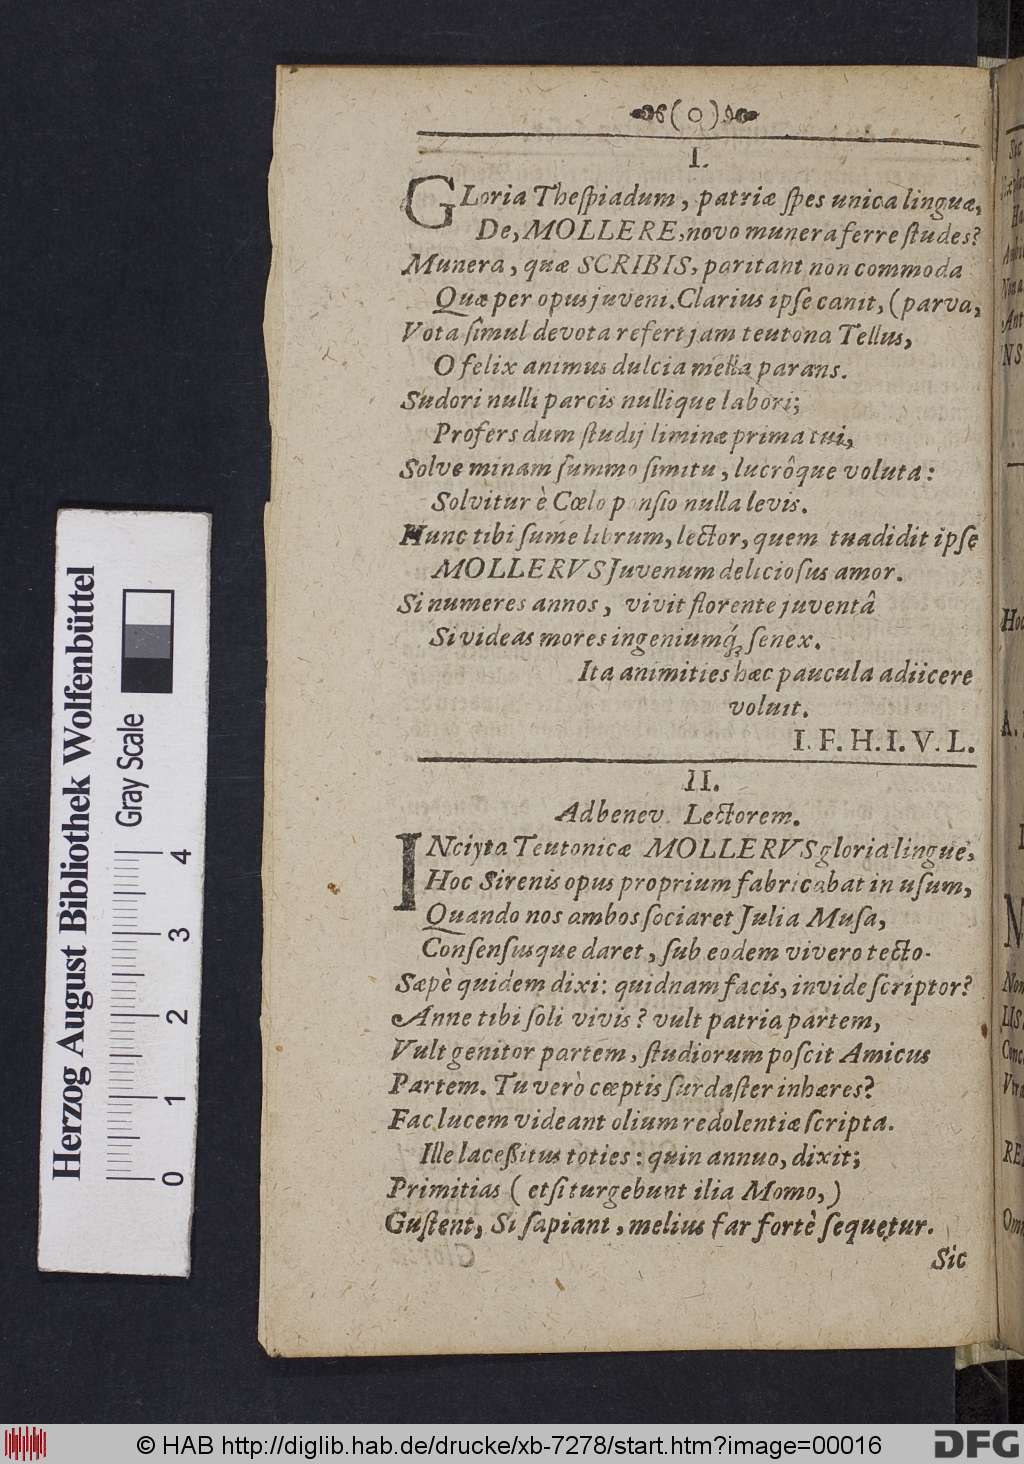 (o)
I.
GLoria Thespiadum, patriæ spes unica linguæ,
De, MOLLERE, novo munera ferre studes?
Munera, quæ SCRIBIS, paritant non commoda
Quæ per opus juveni. Clarius ipse canit, (parva,
Vota simul devota refert jam teutona Tellus,
O felix animus dulcia mella parans.
Sudori nulli parcis nullique labori;
Profers dum studij liminæ prima tui,
Solve minam summo simitu, lucrôque voluta:
Solvitur è Cœlo pensio nulla levis.
Hunc tibi sume librum, lector, quem tuadidit ipse
MOLLERVS Juvenum deliciosus amor.
Si numeres annos, vivit florente juventâ
Si videas mores ingeniumq́; senex.
Ita animities hæc paucula adiicere
voluit.
I. F. H. I. V. L.
II.
Ad benev. Lectorem.
INciyta Teutonicæ MOLLERVS gloria lingue,
Hoc Sirenis opus proprium fabricabat in usum,
Quando nos ambos sociaret Julia Musa,
Consensusque daret, sub eodem vivero tecto.
Sæpè quidem dixi: quidnam facis, invide scriptor?
Anne tibi soli vivis? vult patria partem,
Vult genitor partem, studiorum poscit Amicus
Partem. Tu verò cœptis surdaster inhæres?
Fac lucem videant olium redolentiæ scripta.
Ille lacessitus toties: quin annuo, dixit;
Primitias (etsi turgebunt ilia Momo,)
Gustent, Si sapiant, melius far fortè sequetur.
Sic
Herzog August Bibliothek Wolfenbüttel
Gray Scale
0 1 2 3 4
© HAB http://diglib.hab.de/drucke/xb-7278/start.htm?image=00016
DFG